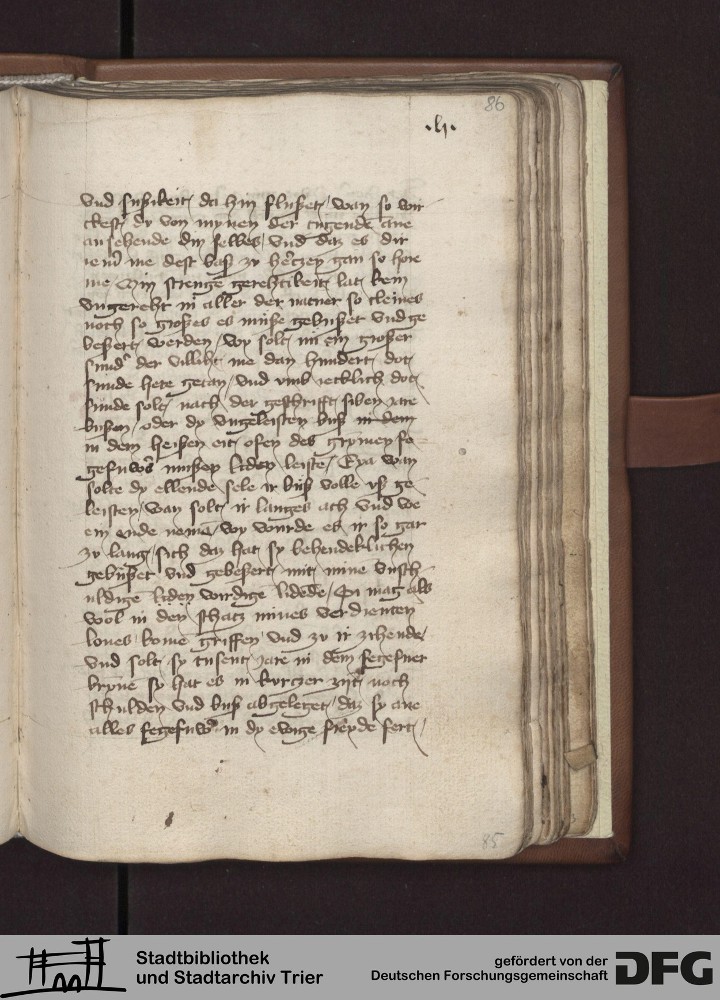 86
·lj·
vnd sußikeit da hin flußet / wan so wir
ckest dv von mynen der tugende ane
an sehende din selbes / vnd daz es dir
ie me dest baß zv herczen gan so hore
me Min strenge gerehtikeit lat kein
vngereht in aller der nature so cleines
noch so großes es muße gebußet vnd ge
beßert werden / wy solt nu ein großer
der villiht me dan hundert dot
sunde hete getan / vnd vmb ieklich dot
sunde solt nach der geschrifft siben iare
bußen / oder dy vngeleisten buß in dem
in dem heißen eit ofen des grymen fe
gefuwers mußen liden leiste / Eya wan
solte dy ellende sele ir buß volle vß ge
leisten / wan solt ir langes ach vnd we
ein ende neme / wy wurde es ir so gar
zv lang / sich daz hat sy behendeklichen
gebußet vnd gebeßert mit mine vnsch
uldige liden wirdige lidede / Sy mag als
wol in den schatz mines verdienten
lones kome griffen / vnd zv ir zihende /
vnd solt sy tusent iare in dem fegefuer
bryne sy hat es in kurczer zijt noch
schulden vnd buß abgeleget / daz sy ane
alles fegefuwer in dy ewige freyde fert /
85
Stadtbibliothek
und Stadtarchiv Trier
gefördert von der
Deutschen Forschungsgemeinschaft
DFG